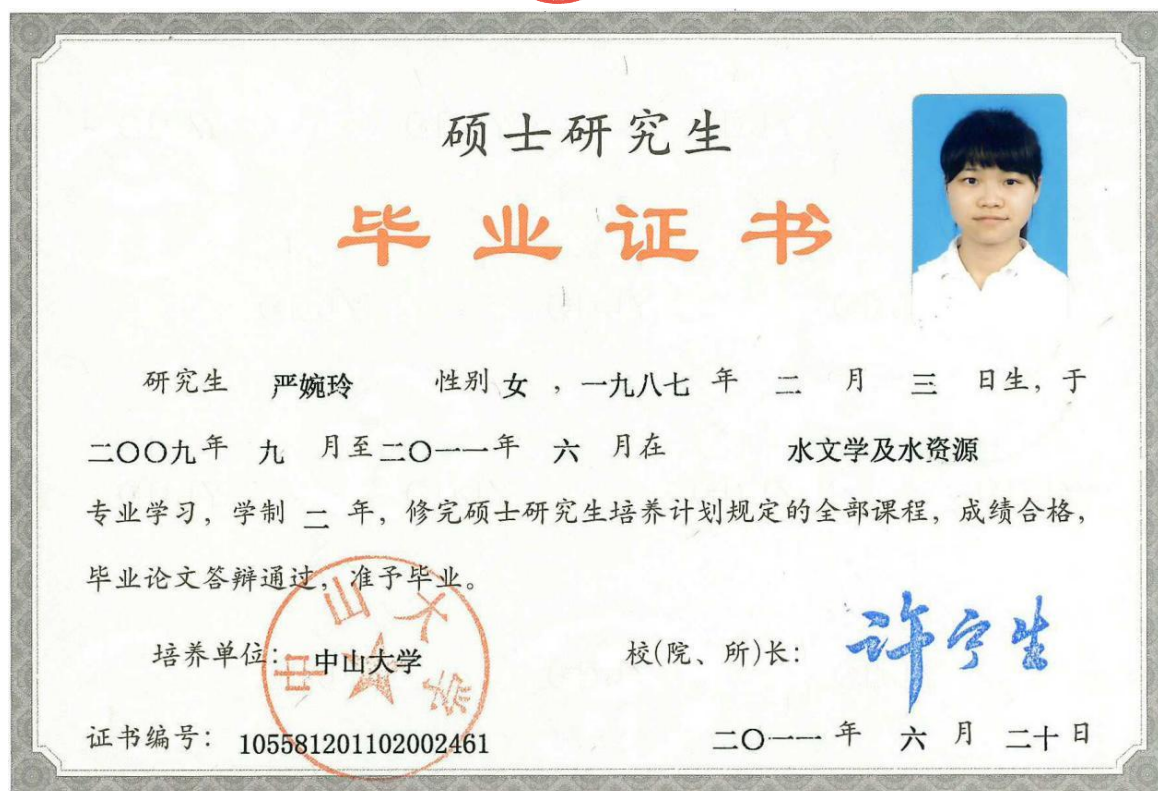 硕士研究生
毕业证书
研究生 严婉玲 性别 女 ，一九八七 年 二 月 三 日生，于
二〇〇九年 九 月至二〇一一年 六 月在 水文学及水资源
专业学习，学制 二 年，修完硕士研究生培养计划规定的全部课程，成绩合格，
毕业论文答辩通过，准予毕业。
培养单位：中山大学
校(院、所)长：许宁生
中山大学
证书编号：105581201102002461
二〇一一 年 六 月 二十 日